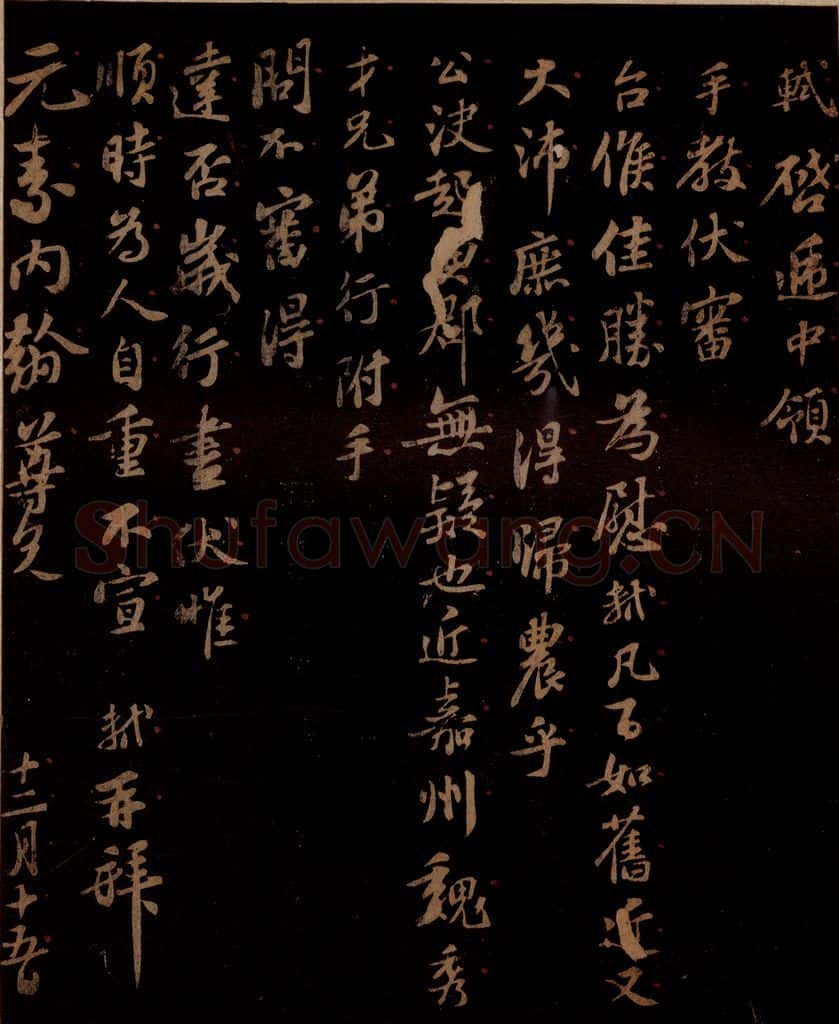 軾啓遞中領
手教伏審
台候佳勝為慰軾凡百如舊近又
大沛庶幾得歸農乎
公決起典郡無疑也近嘉州魏秀
才兄弟行附手
問不審得
達否歲行盡伏惟
順時為人自重不宣 軾再拜
元素內翰尊兄 十二月十五
Shufawang.CN